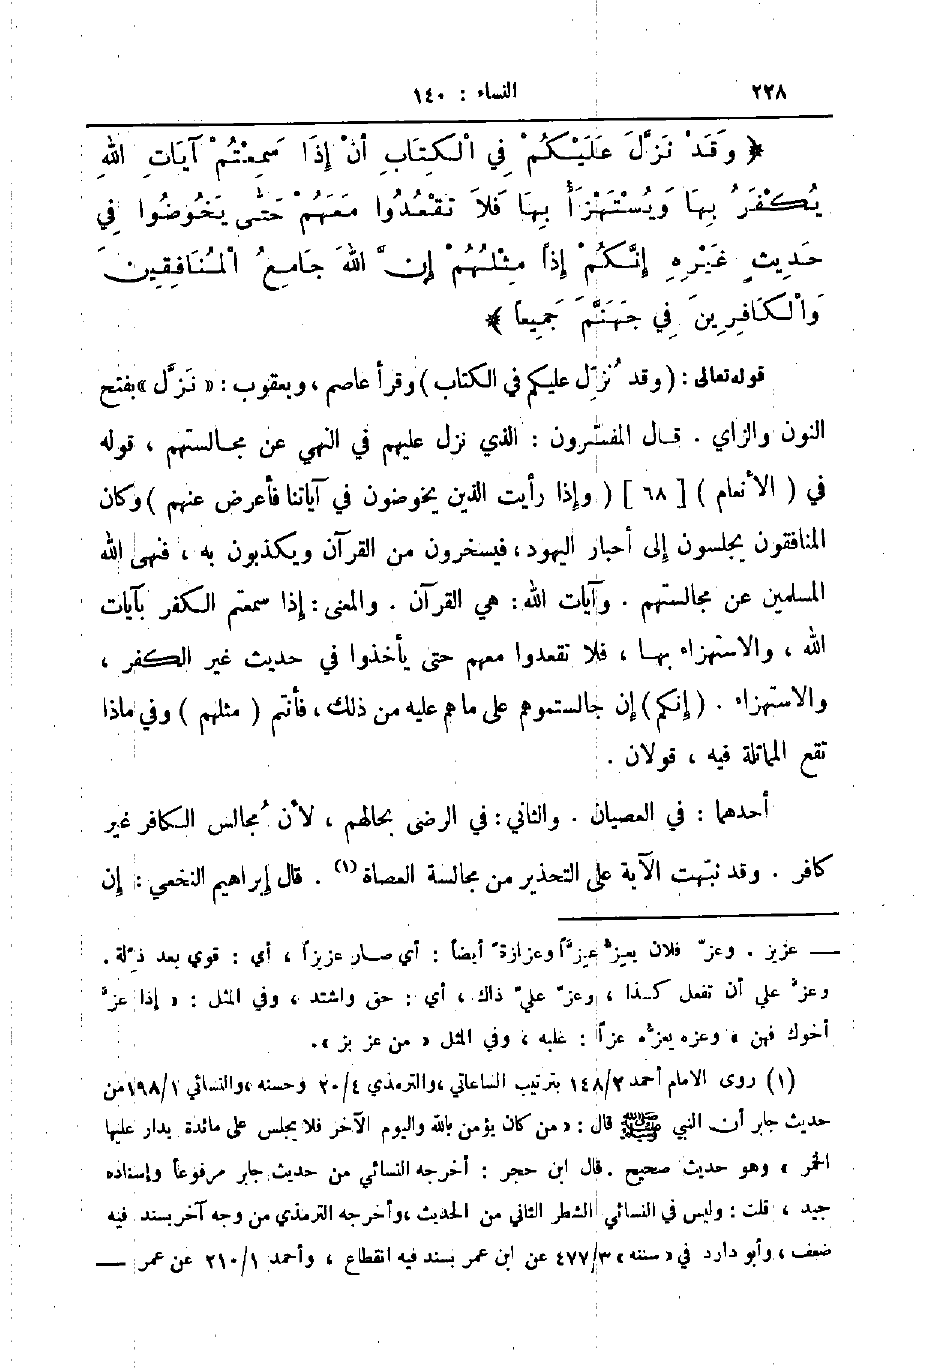 ٢٢٨ النساء : ١٤٠
﴿ وَقَدْ نَزَّلَ عَلَيْكُمْ فِي الْكِتَابِ أَنْ إِذَا سَمِعْتُمْ آيَاتِ اللهِ
يُكْفَرُ بِهَا وَيُسْتَهْزَأُ بِهَا فَلَا تَقْعُدُوا مَعَهُمْ حَتَّى يَخُوضُوا فِي
حَدِيثٍ غَيْرِهِ إِنَّكُمْ إِذَاً مِثْلُهُمْ إِنَّ اللهَ جَامِعُ الْمُنَافِقِينَ
وَالْكَافِرِينَ فِي جَهَنَّمَ جَمِيعاً ﴾
قوله تعالى : ( وقد نُزِّل عليكم في الكتاب ) وقرأ عاصم ، ويعقوب : « نَزَّل » بفتح
النون والزاي . قال المفسّرون : الذي نزل عليهم في النهي عن مجالستهم ، قوله
في ( الأنعام ) [ ٦٨ ] ( وإذا رأيت الذين يخوضون في آياتنا فأعرض عنهم ) وكان
المنافقون يجلسون إلى أحبار اليهود ، فيسخرون من القرآن ويكذبون به ، فنهى الله
المسلمين عن مجالستهم . وآيات الله : هي القرآن . والمعنى : إذا سمعتم الكفر بآيات
الله ، والاستهزاء بها ، فلا تقعدوا معهم حتى يأخذوا في حديث غير الكفر ،
والاستهزاء . ( إنكم ) إن جالستموهم على ما هم عليه من ذلك ، فأنتم ( مثلهم ) وفي ماذا
تقع المماثلة فيه ، قولان .
أحدهما : في العصيان . والثاني : في الرضى بحالهم ، لأن مُجالس الكافر غير
كافر . وقد نبّهت الآية على التحذير من مجالسة العصاة (١) . قال إبراهيم النخعي : إن
— عزيز . وعزّ فلان يعِزُّ عِزَّاً وعزازةً أيضاً : أي صار عزيزاً ، أي : قوي بعد ذِلّة .
وعزَّ علي أن تفعل كذا ، وعزّ عليّ ذاك ، أي : حق واشتد ، وفي المثل : « إذا عزَّ
أخوك فهن » وعزه يعزُّه عزاً : غلبه ، وفي المثل « من عز بز » .
(١) روى الامام أحمد ١٤٨/٢ بترتيب الساعاتي ، والترمذي ٢٠/٤ وحسنه ، والنسائي ١٩٨/١ من
حديث جابر أن النبي ﷺ قال : « من كان يؤمن بالله واليوم الآخر فلا يجلس على مائدة يدار عليها
الخمر » وهو حديث صحيح . قال ابن حجر : أخرجه النسائي من حديث جابر مرفوعاً وإسناده
جيد ، قلت : وليس في النسائي الشطر الثاني من الحديث ، وأخرجه الترمذي من وجه آخر بسند فيه
ضعف ، وأبو دارد في « سننه » ٤٧٧/٣ عن ابن عمر بسند فيه انقطاع ، وأحمد ٢١٠/١ عن عمر —